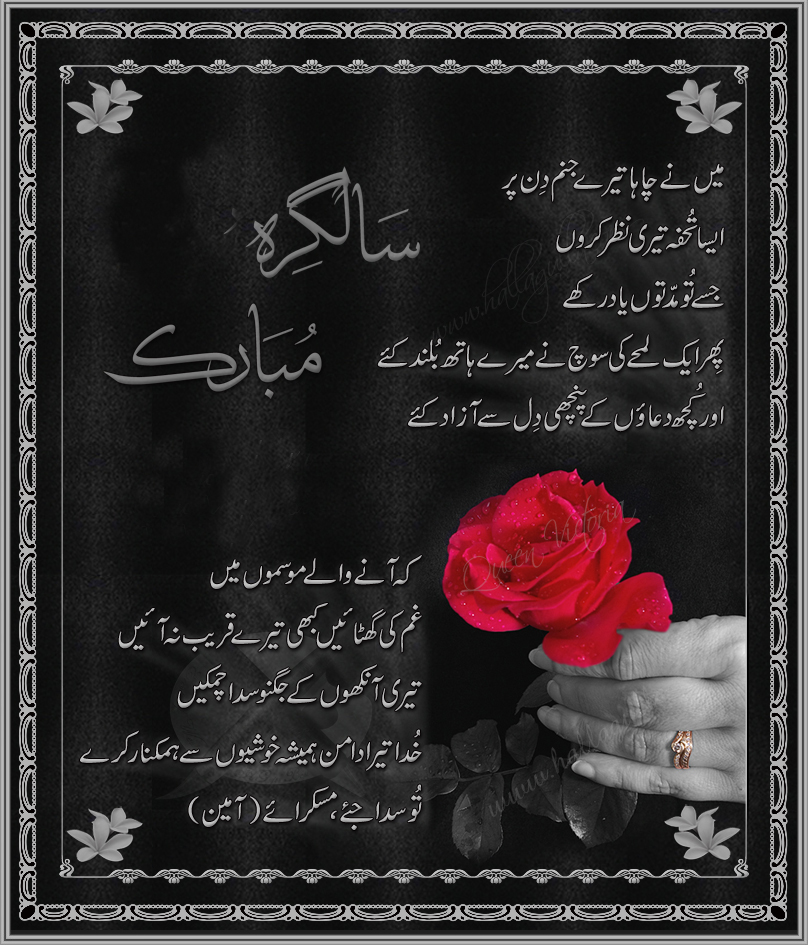 سَالگِرہ
مُبَارک
میں نے چاہا تیرے جنم دِن پر
ایسا تُحفہ تیری نظر کروں
جسے تُو مدّتوں یاد رکھے
پِھر ایک لمحے کی سوچ نے میرے ہاتھ بُلند کئے
اور کُچھ دعاؤں کے پنچھی دِل سے آزاد کئے
Queen Victoria
کہ آنے والے موسموں میں
غم کی گھٹائیں کبھی تیرے قریب نہ آئیں
تیری آنکھوں کے جگنو سدا چمکیں
خُدا تیرا دامن ہمیشہ خوشیوں سے ہمکنار کرے
تُو سدا جئے، مسکرائے (آمین)